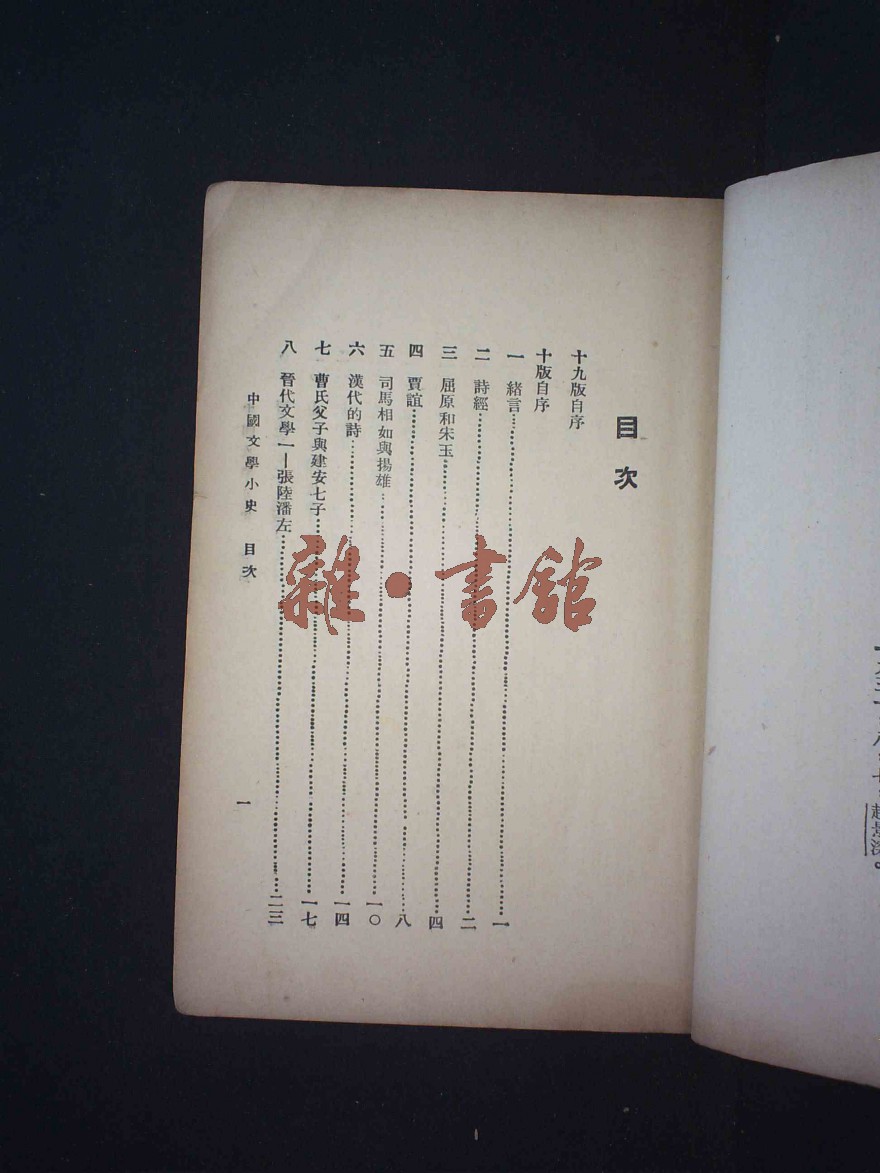 目次
十九版自序
十版自序
一 緒言……一
二 詩經……二
三 屈原和宋玉……四
四 賈誼……八
五 司馬相如與揚雄……一〇
六 漢代的詩……一四
七 曹氏父子與建安七子……一七
八 晉代文學一——張陸潘左……二三
中國文學小史 目次
一
雜·書館
趙景深。